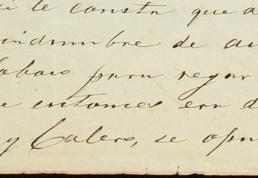 i le consta que a
idumbre de au
abajo para regar
e entonces era d
y Calero, se opu